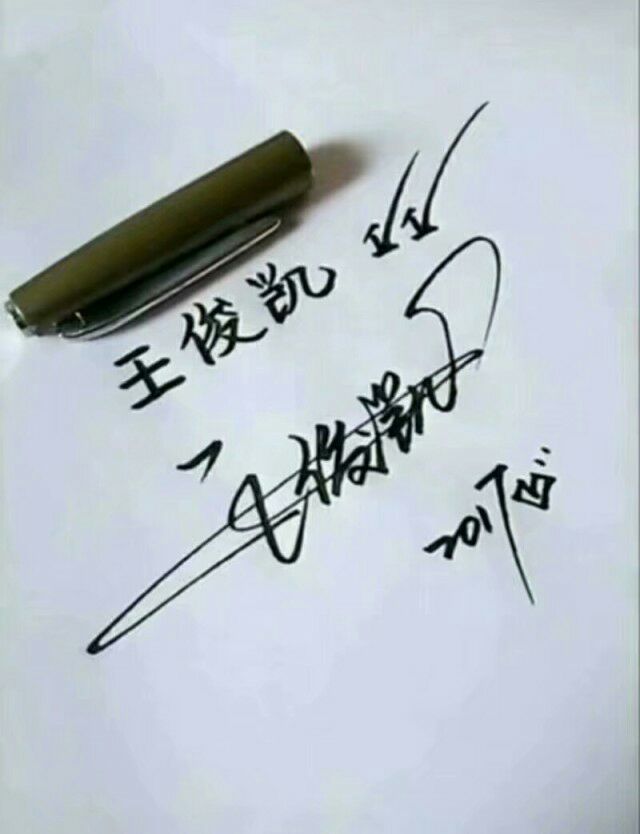 王俊凯
王俊凯
2017